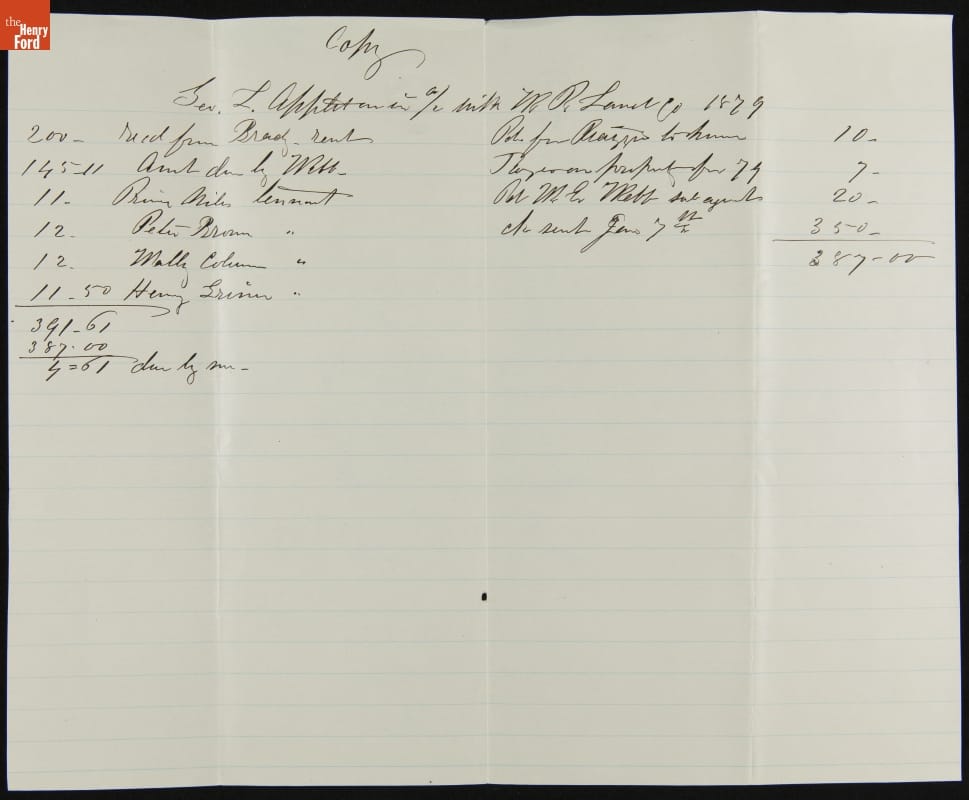 the Henry Ford
Copy
Geo. L. Appleton in a/c with W. R. Land Co 1879
200- recd from Brady rent
145-11 Amt due by Webb-
11. Prime Miles tennant
12. Peter Brown "
12. Molly Colum "
11-50 Henry Griner "
391-61
387.00
4=61 due by me-
Pd for to house 10-
Taxes on property for 79 7-
Pd W. E. Webb sub agent 20-
ck sent Jany 7th 350-
387-00